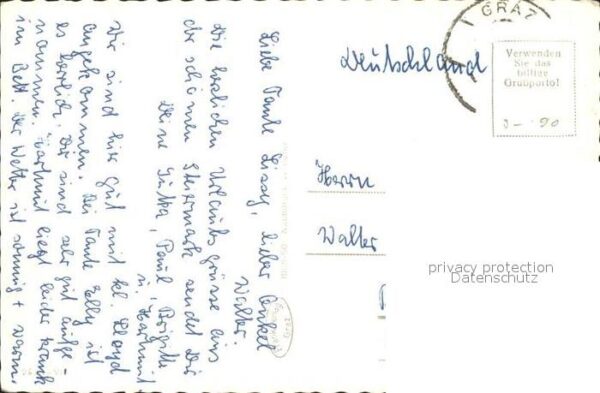 Liebe Tante Lissy, lieber Onkel
Walter.
Die herzlichen Urlaubsgrüsse aus
der schönen Steiermark sendet Dir
Deine Jutka, Paul, Brigitte
u. Hartmut
Wir sind hier gut mit kl. Lloyd
angekommen. Bei Tante Elly ist
es herrlich. Wir sind sehr gut aufge-
nommen. Hartmut liegt leider krank
im Bett. Der Wetter ist sonnig + warm.
Deutschland
GRAZ
Verwenden
Sie das
billige
Grußporto!
Herrn
Walter
privacy protection
Datenschutz